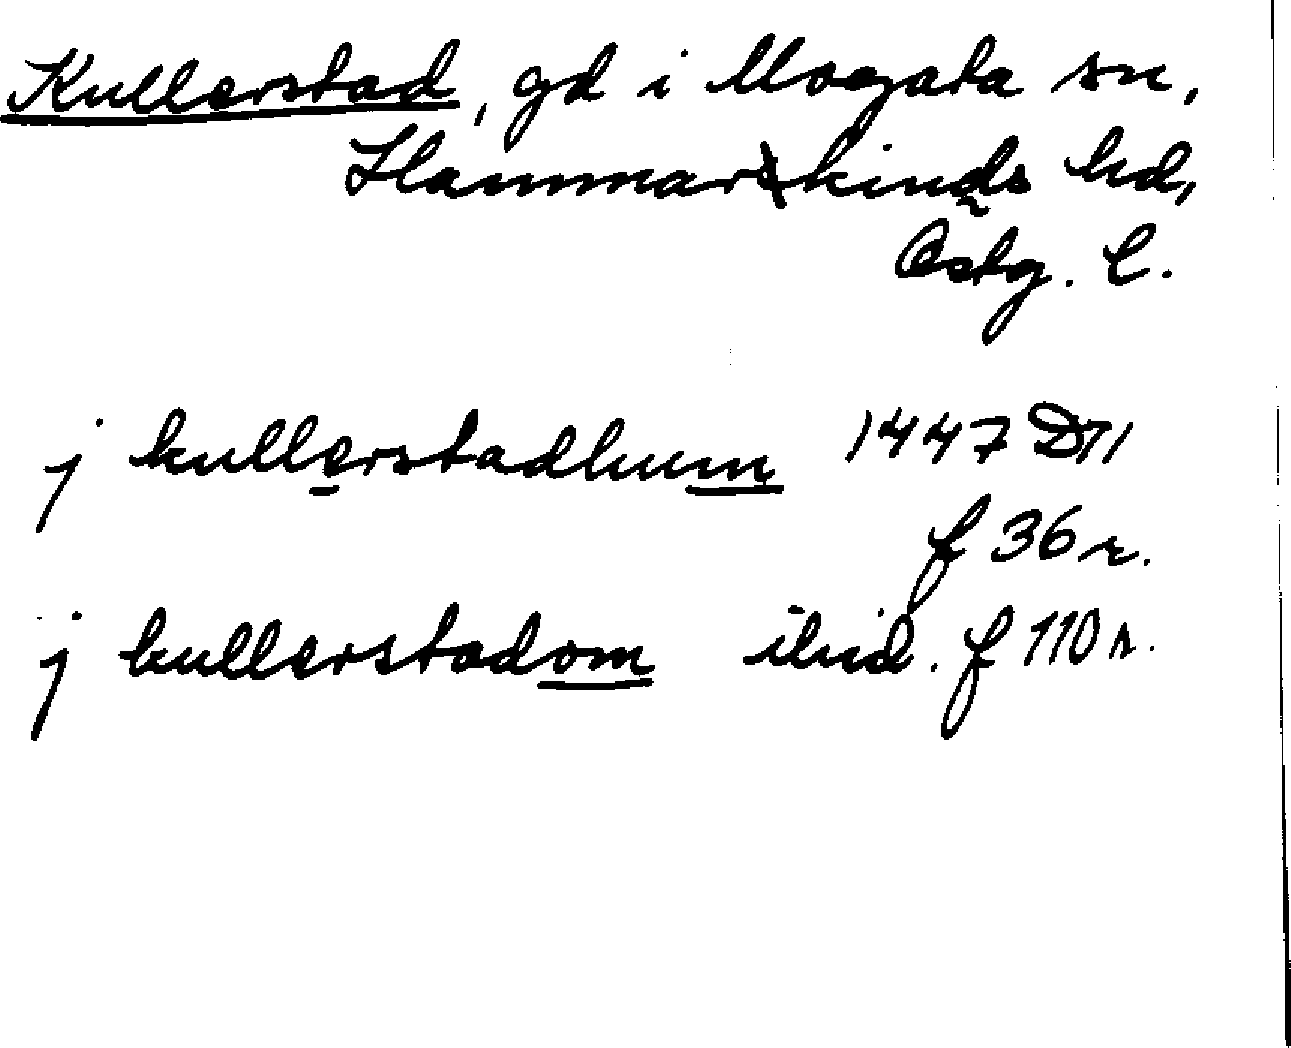 Kullerstad, gd i Mogata sn,
Hammarkinds hd,
Östg. l.
j kullerstadhum 1447 D11
f 36 r.
j kullerstadom ibid. f 110 r.